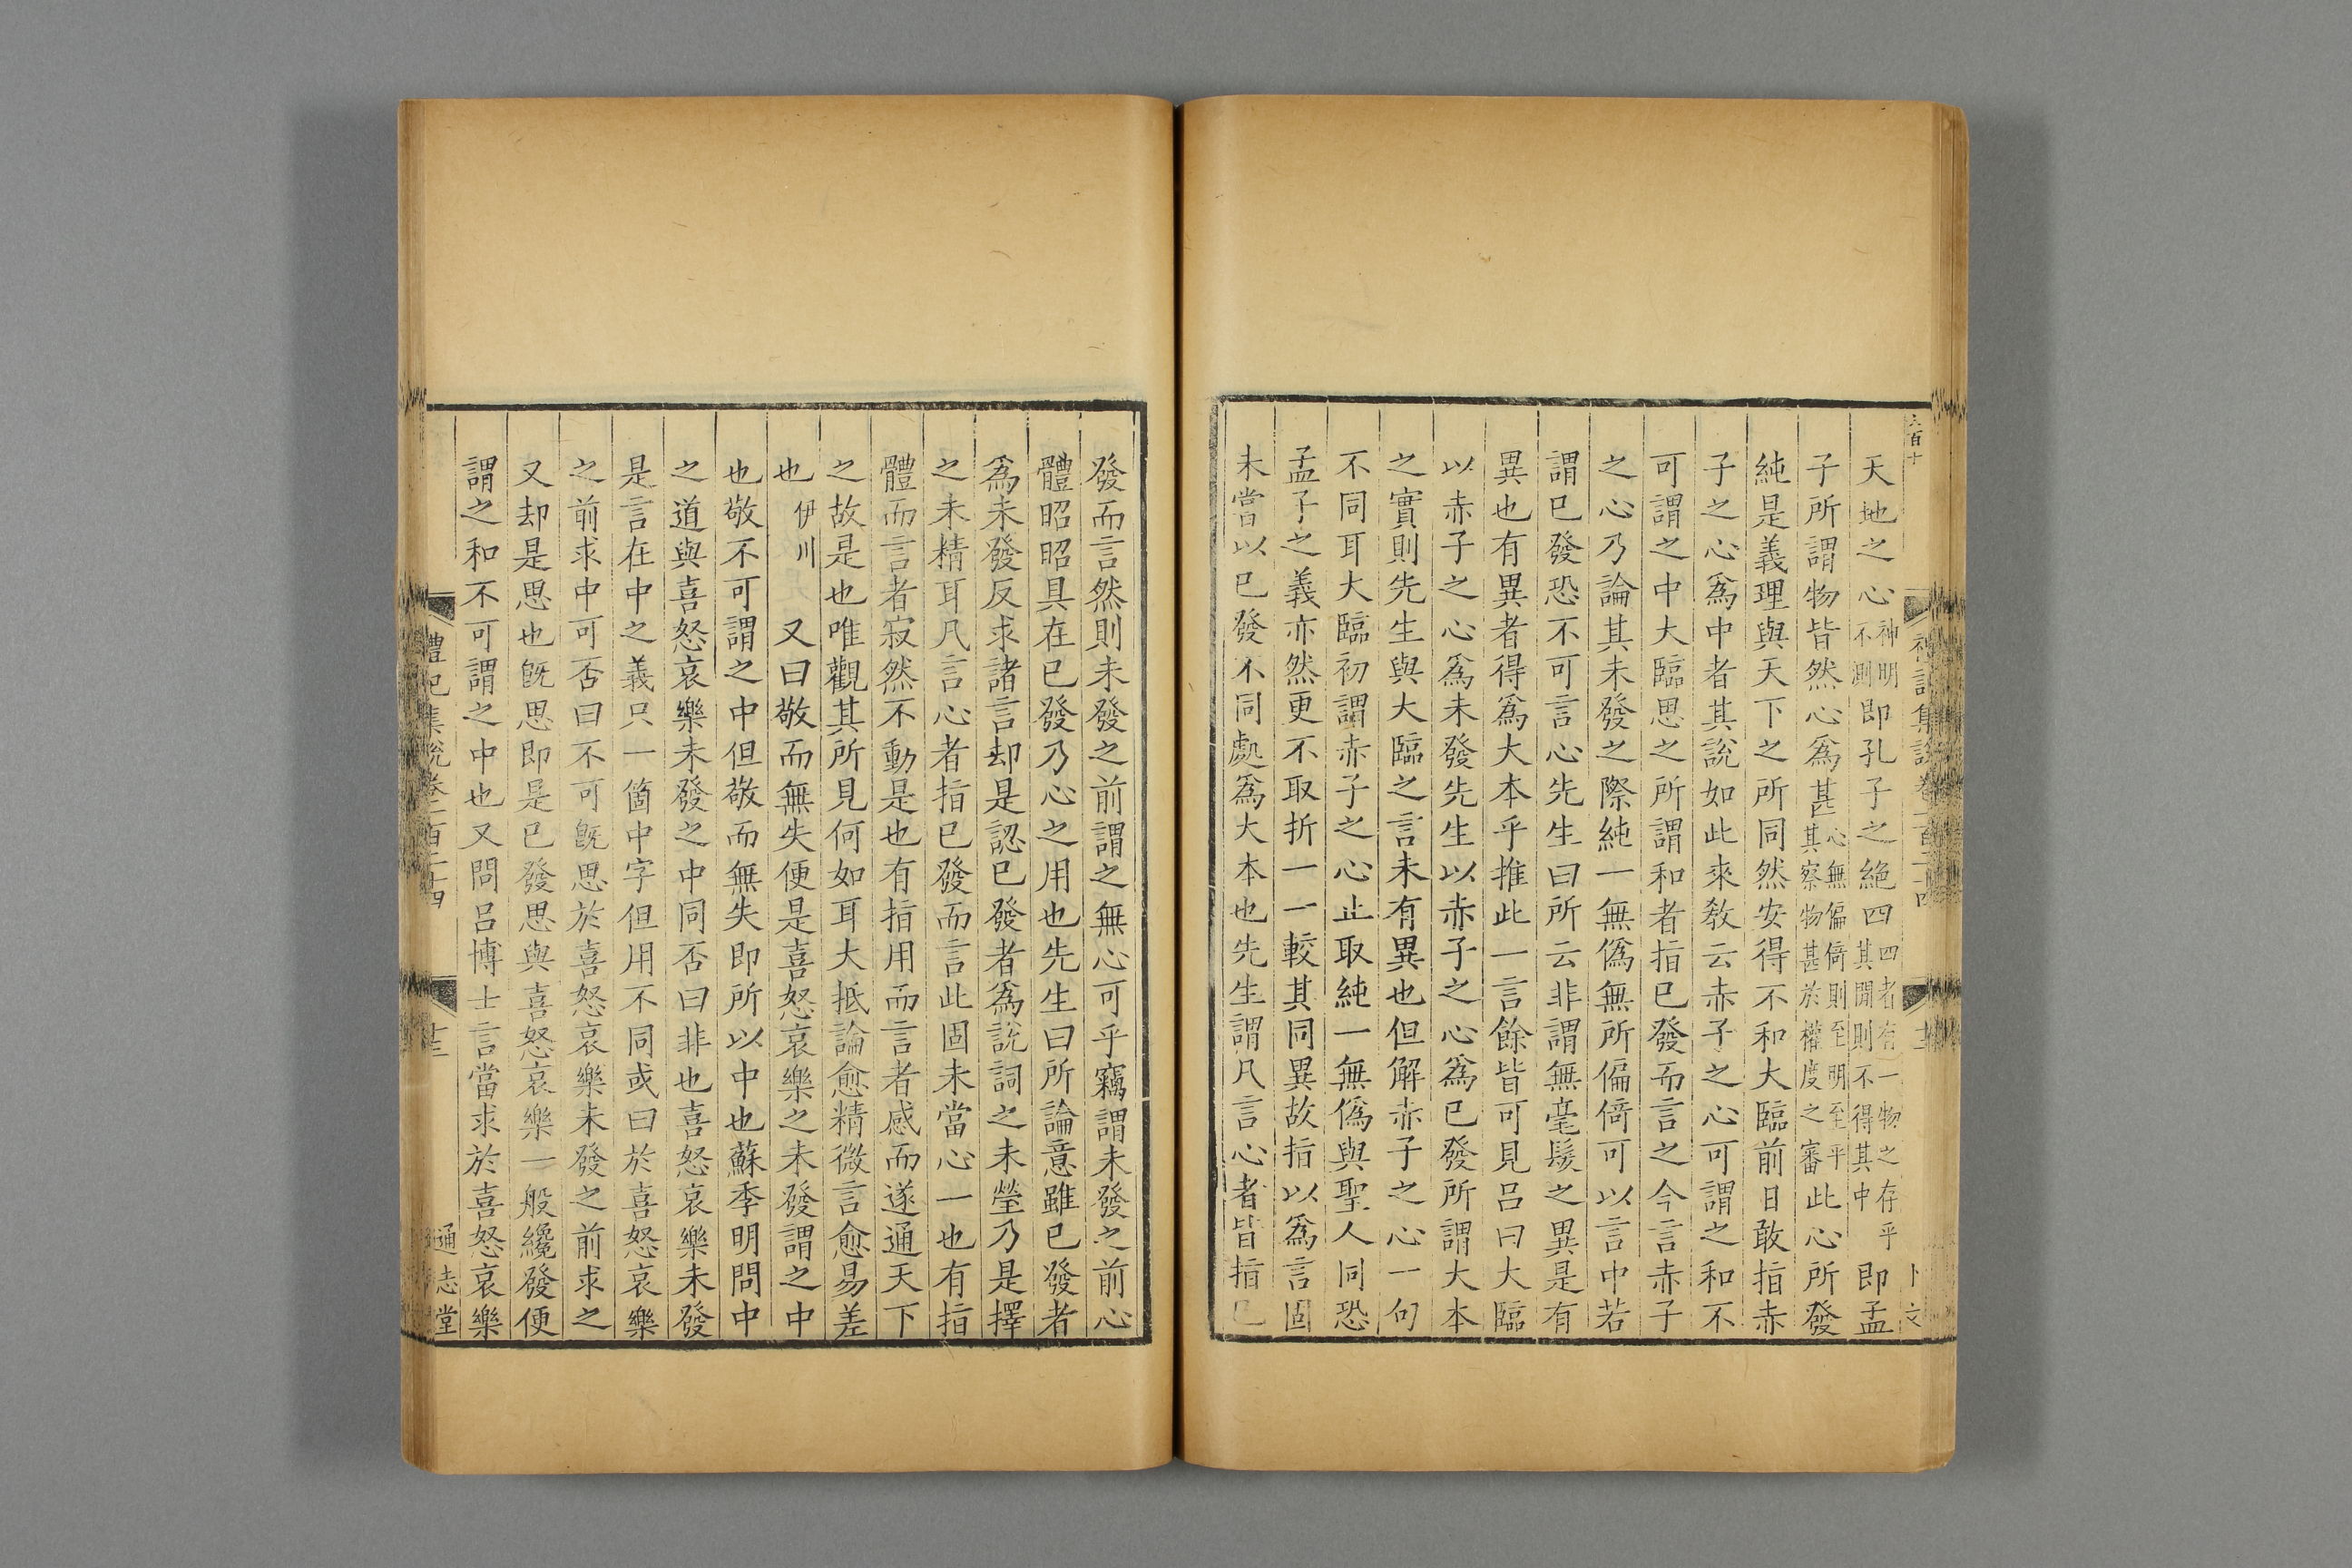 六百十
天地之心神明不測即孔子之絶四四者有一物之存乎其間則不得其中即孟
子所謂物皆然心爲甚心無偏倚則至明至平其察物甚於權度之審此心所發
純是義理與天下之所同然安得不和大臨前日敢指赤
子之心爲中者其說如此來教云赤子之心可謂之和不
可謂之中大臨思之所謂和者指已發而言之今言赤子
之心乃論其未發之際純一無僞無所偏倚可以言中若
謂已發恐不可言心先生曰所云非謂無毫髮之異是有
異也有異者得爲大本乎推此一言餘皆可見呂曰大臨
以赤子之心爲未發先生以赤子之心爲已發所謂大本
之實則先生與大臨之言未有異也但解赤子之心一句
不同耳大臨初謂赤子之心止取純一無僞與聖人同恐
孟子之義亦然更不取折一一較其同異故指以爲言固
未嘗以已發不同處爲大本也先生謂凡言心者皆指已
發而言然則未發之前謂之無心可乎竊謂未發之前心
體昭昭具在已發乃心之用也先生曰所論意雖已發者
爲未發反求諸言却是認已發者爲說詞之未瑩乃是擇
之未精耳凡言心者指已發而言此固未當心一也有指
體而言者寂然不動是也有指用而言者感而遂通天下
之故是也唯觀其所見何如耳大抵論愈精微言愈易差
也伊川 又曰敬而無失便是喜怒哀樂之未發謂之中
也敬不可謂之中但敬而無失即所以中也蘇季明問中
之道與喜怒哀樂未發之中同否曰非也喜怒哀樂未發
是言在中之義只一箇中字但用不同或曰於喜怒哀樂
之前求中可否曰不可旣思於喜怒哀樂未發之前求之
又却是思也旣思即是已發思與喜怒哀樂一般纔發便
謂之和不可謂之中也又問呂博士言當求於喜怒哀樂
禮記集說卷一百二十四
十三
通志堂